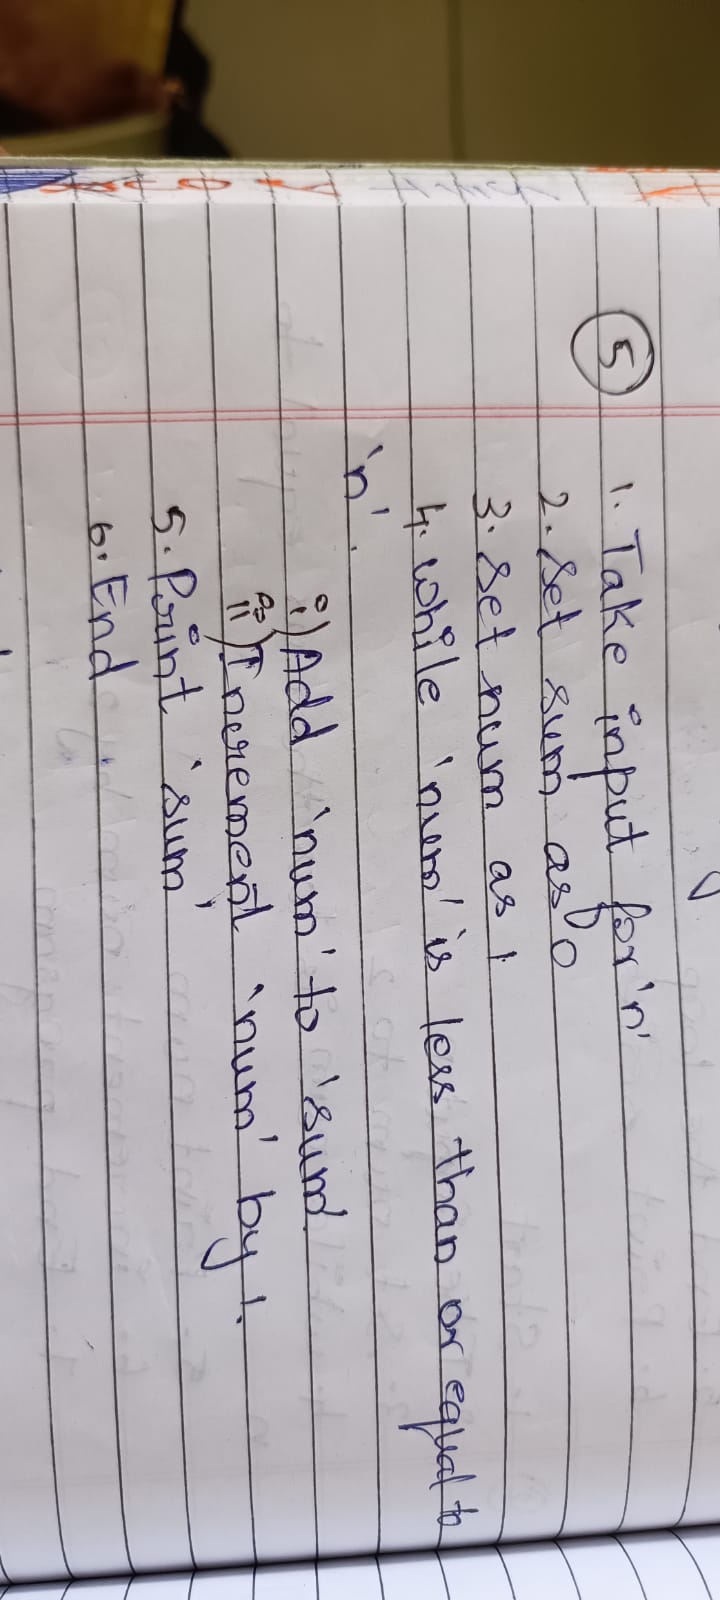 5
1. Take input for 'n'
2. Set sum as 0
3. Set num as 1
4. While 'num' is less than or equal to
'n'.
i) Add 'num' to 'sum'.
ii) Increment 'num' by 1.
5. Print 'sum'
6. End